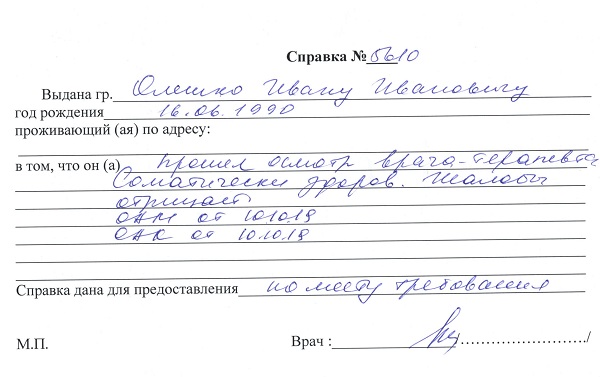 Справка № 5610
Выдана гр. Олешко Ивану Ивановичу
год рождения 16.06.1990
проживающий (ая) по адресу:
в том, что он (а) прошел осмотр врача-терапевта
Соматически здоров. Жалобы
отрицает
ОАМ от 10.10.19
ОАК от 10.10.19
Справка дана для предоставления по месту требования
М.П. Врач : /